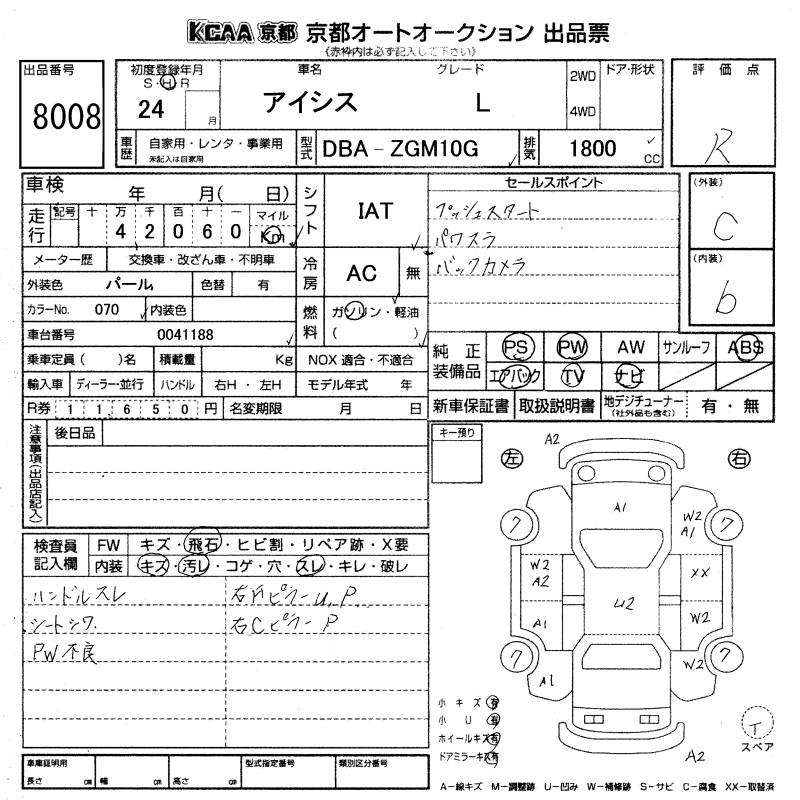 KCAA 京都 京都オートオークション 出品票
《赤枠内は必ず記入して下さい》
出品番号
8008
初度登録年月
S・H・R
24
月
車名
アイシス
グレード
L
2WD
4WD
ドア・形状
評価点
R
車歴
自家用・レンタ・事業用
未記入は自家用
型式
DBA-ZGM10G
排気
1800
CC
車検
年 月( 日)
走行
記号 十 万 千 百 十 一 マイル
4 2 0 6 0 Km
シフト
IAT
セールスポイント
プッシュスタート
パワスラ
バックカメラ
(外装)
C
(内装)
b
メーター歴
交換車・改ざん車・不明車
冷房
AC
無
外装色
パール
色替
有
カラーNo.
070
内装色
燃料
ガソリン・軽油
( )
車台番号
0041188
純正装備品
PS PW AW サンルーフ ABS
エアバック TV ナビ
乗車定員( )名
積載量
Kg
NOX 適合・不適合
輸入車
ディーラー・並行
ハンドル
右H・左H
モデル年式 年
新車保証書
取扱説明書
地デジチューナー
(社外品も含む)
有・無
R券
1 1 6 5 0 円
名変期限
月 日
注意事項(出品店記入)
後日品
キー預り
検査員記入欄
FW
キズ・飛石・ヒビ割・リペア跡・X要
内装
キズ・汚レ・コゲ・穴・スレ・キレ・破レ
ハンドルスレ
シートシワ
PW不良
右Aピラーu,P
右Cピラー P
左
右
A2
A1
7
W2
A1
7
W2
A2
XX
U2
A1
W2
7
W2
7
A1
小キズ 有
小U 有
ホイールキズ 有
ドアミラーキズ 有
T
スペア
A2
車庫証明用
長さ cm
幅 cm
高さ cm
型式指定番号
類別区分番号
A-線キズ M-調整跡 U-凹み W-補修跡 S-サビ C-腐食 XX-取替済